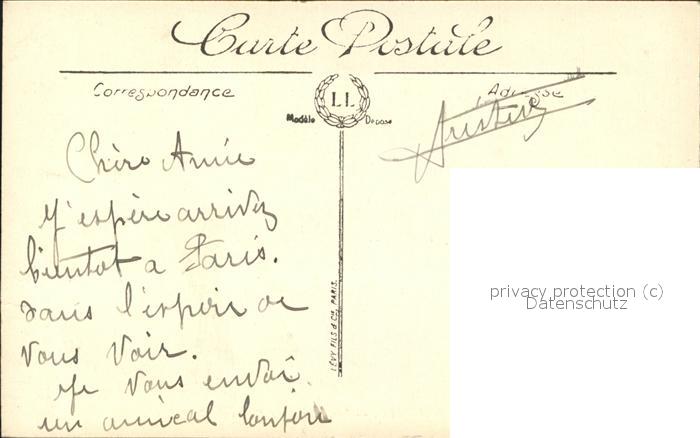 Carte Postale
Correspondance
Adresse
LL
Modèle Déposé
Chère Amie
J'espère arrivez
bientot a Paris.
dans l'espoir de
vous voir.
Je vous envoi
un amical bonjour
LÉVY FILS & Cie, PARIS.
privacy protection (c)
Datenschutz